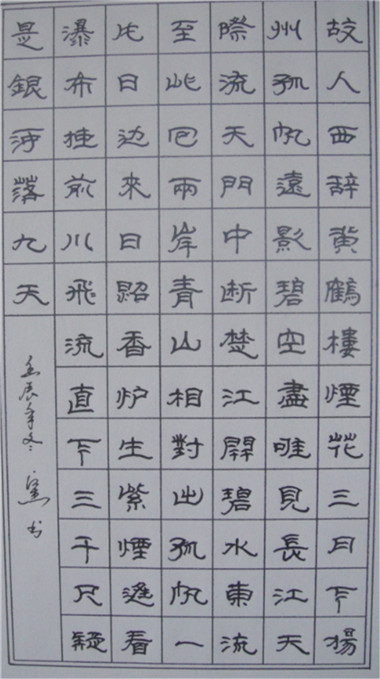 故人西辞黄鶴樓煙花三月下揚
州孤帆遠影碧空盡唯見長江天
際流天門中断楚江開碧水東流
至此回兩岸青山相對出孤帆一
片日边來日照香炉生紫煙遥看
瀑布挂前川飛流直下三千尺疑
是銀河落九天
壬辰年书